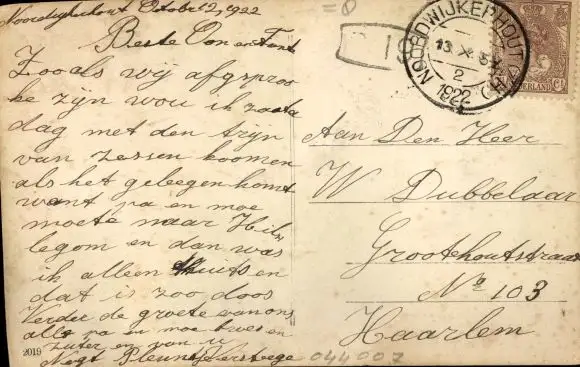 Noordwijkerhout October 12, 1922
Beste Oom en Tante
Zooals wij afgsproo
ke zijn wou ik zoota
dag met den trijn
van zessen koomen
als het geleegen komt
want pa en moe
moete naar Hils
legom en dan was
ik alleen thuits en
dat is zoo doos
Verder de groete van ons
alle pa en moe broes en
zuter en van u
Nigt Pleuntje Versteege
2019
NOORDWIJKERHOUT
13 X 5
2
1922
NEDERLAND
Aan Den Heer
W Dubbelaar
Groothoutstraat
No 103
Haarlem
044007